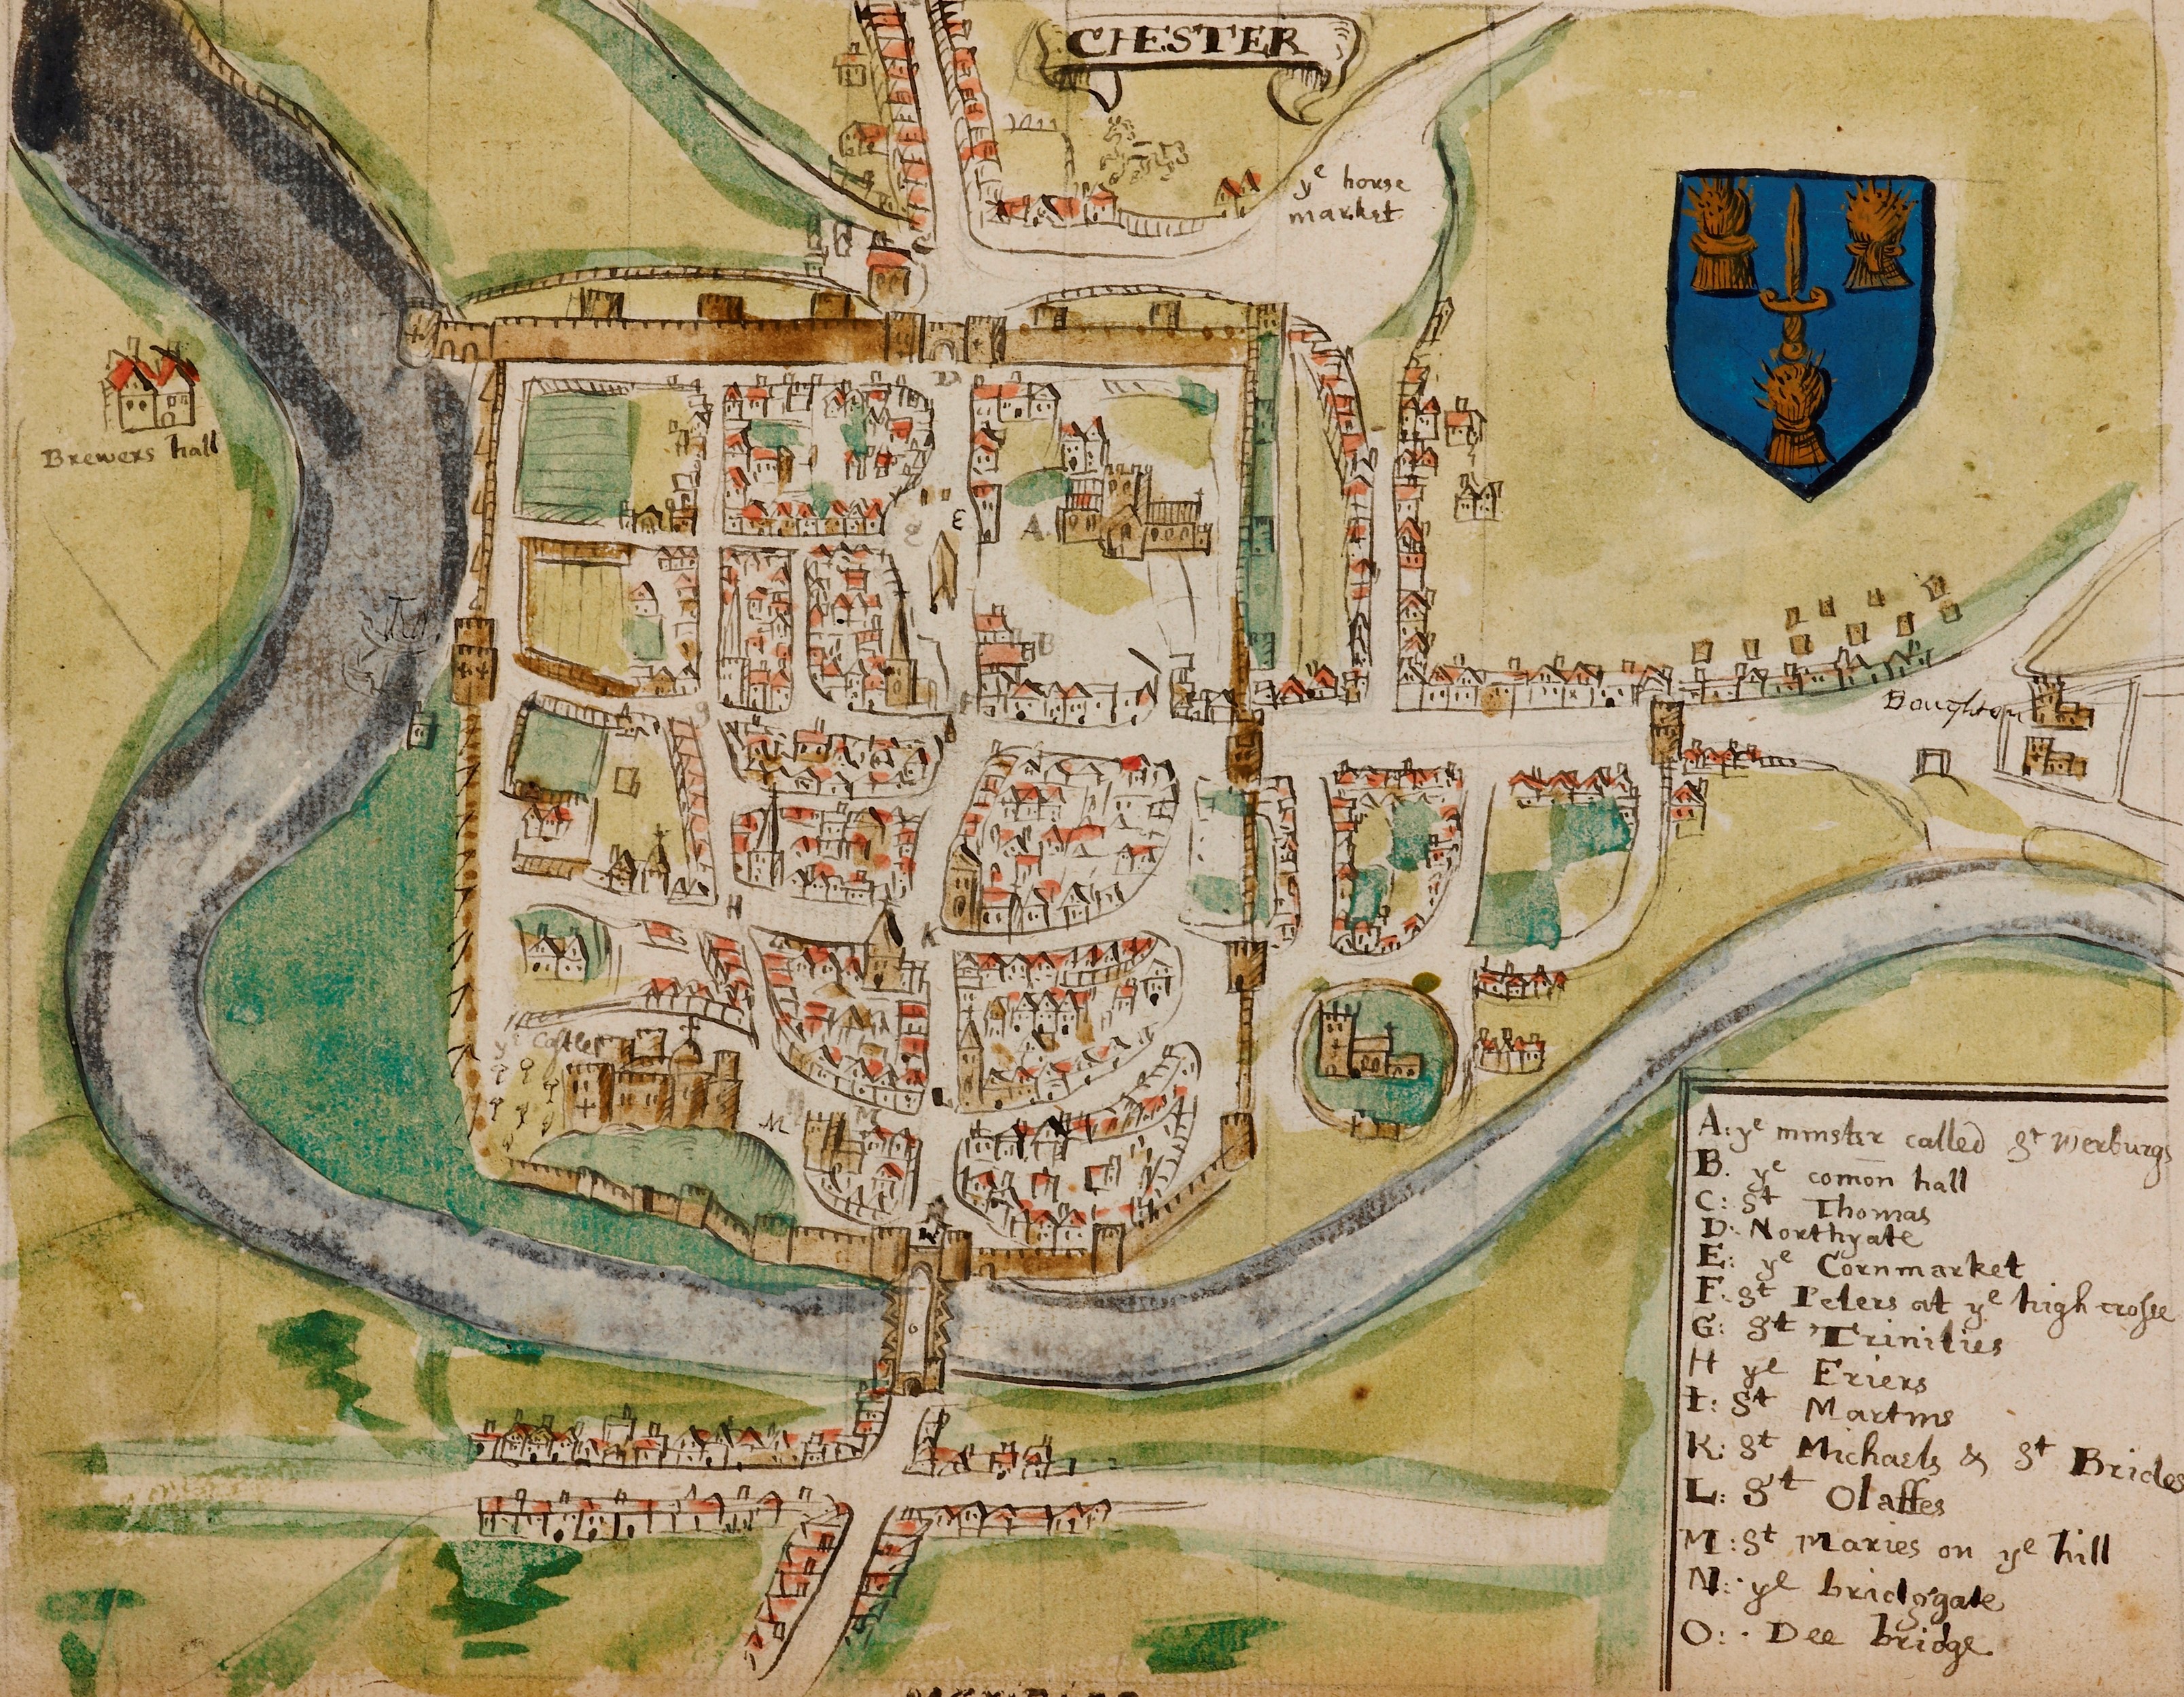 CHESTER
yᵉ horse
market
Brewers hall
D
E
A
B
Boughton
H
K
yᵉ Castle
M
A: yᵉ minster called Sᵗ Werburgs
B. yᵉ comōn hall
C: Sᵗ Thomas
D: Northgate
E: yᵉ Cornmarket
F: Sᵗ Peters at yᵉ high crosse
G: Sᵗ Trinities
H yᵉ Friers
I: Sᵗ Martins
K: Sᵗ Michaels & Sᵗ Brides
L: Sᵗ Olaffes
M: Sᵗ Maries on yᵉ hill
N: yᵉ bridggate
O: Dee bridge